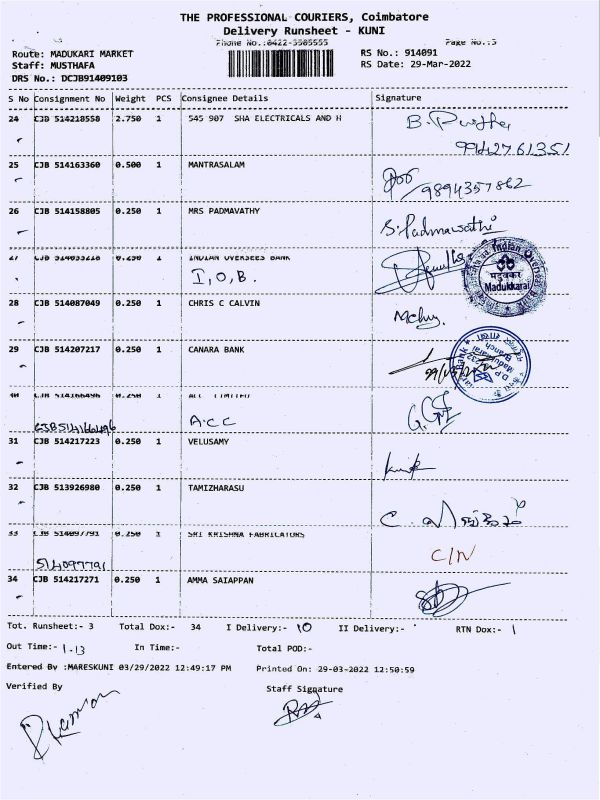 THE PROFESSIONAL COURIERS, Coimbatore
Delivery Runsheet - KUNI
Phone No.:0422-3505555 Page No.:3
Route: MADUKARI MARKET RS No.: 914091
Staff: MUSTHAFA RS Date: 29-Mar-2022
DRS No.: DCJB91409103
S No Consignment No Weight PCS Consignee Details Signature
24 CJB 514218558 2.750 1 545 907 SHA ELECTRICALS AND H
9942761351
25 CJB 514163360 0.500 1 MANTRASALAM
9894357862
26 CJB 514158805 0.250 1 MRS PADMAVATHY S.Padmavathi
27 CJB 0.250 1 INDIAN OVERSEES BANK
I.O.B.
Indian Overseas Bank
मदुक्करै
Madukkarai
28 CJB 514087049 0.250 1 CHRIS C CALVIN
29 CJB 514207217 0.250 1 CANARA BANK
Bank
D P
Madukkarai
Branch
30 CJB 514166496 0.250 1 ACC LIMITED
CJB514166496 A.CC
31 CJB 514217223 0.250 1 VELUSAMY
32 CJB 513926980 0.250 1 TAMIZHARASU
33 CJB 514097791 0.250 1 SRI KRISHNA FABRICATORS
514097791 C/N
34 CJB 514217271 0.250 1 AMMA SAIAPPAN
Tot. Runsheet:- 3 Total Dox:- 34 I Delivery:- 10 II Delivery:- RTN Dox:- 1
Out Time:- 1.13 In Time:- Total POD:-
Entered By :MARESKUNI 03/29/2022 12:49:17 PM Printed On: 29-03-2022 12:50:59
Verified By Staff Signature